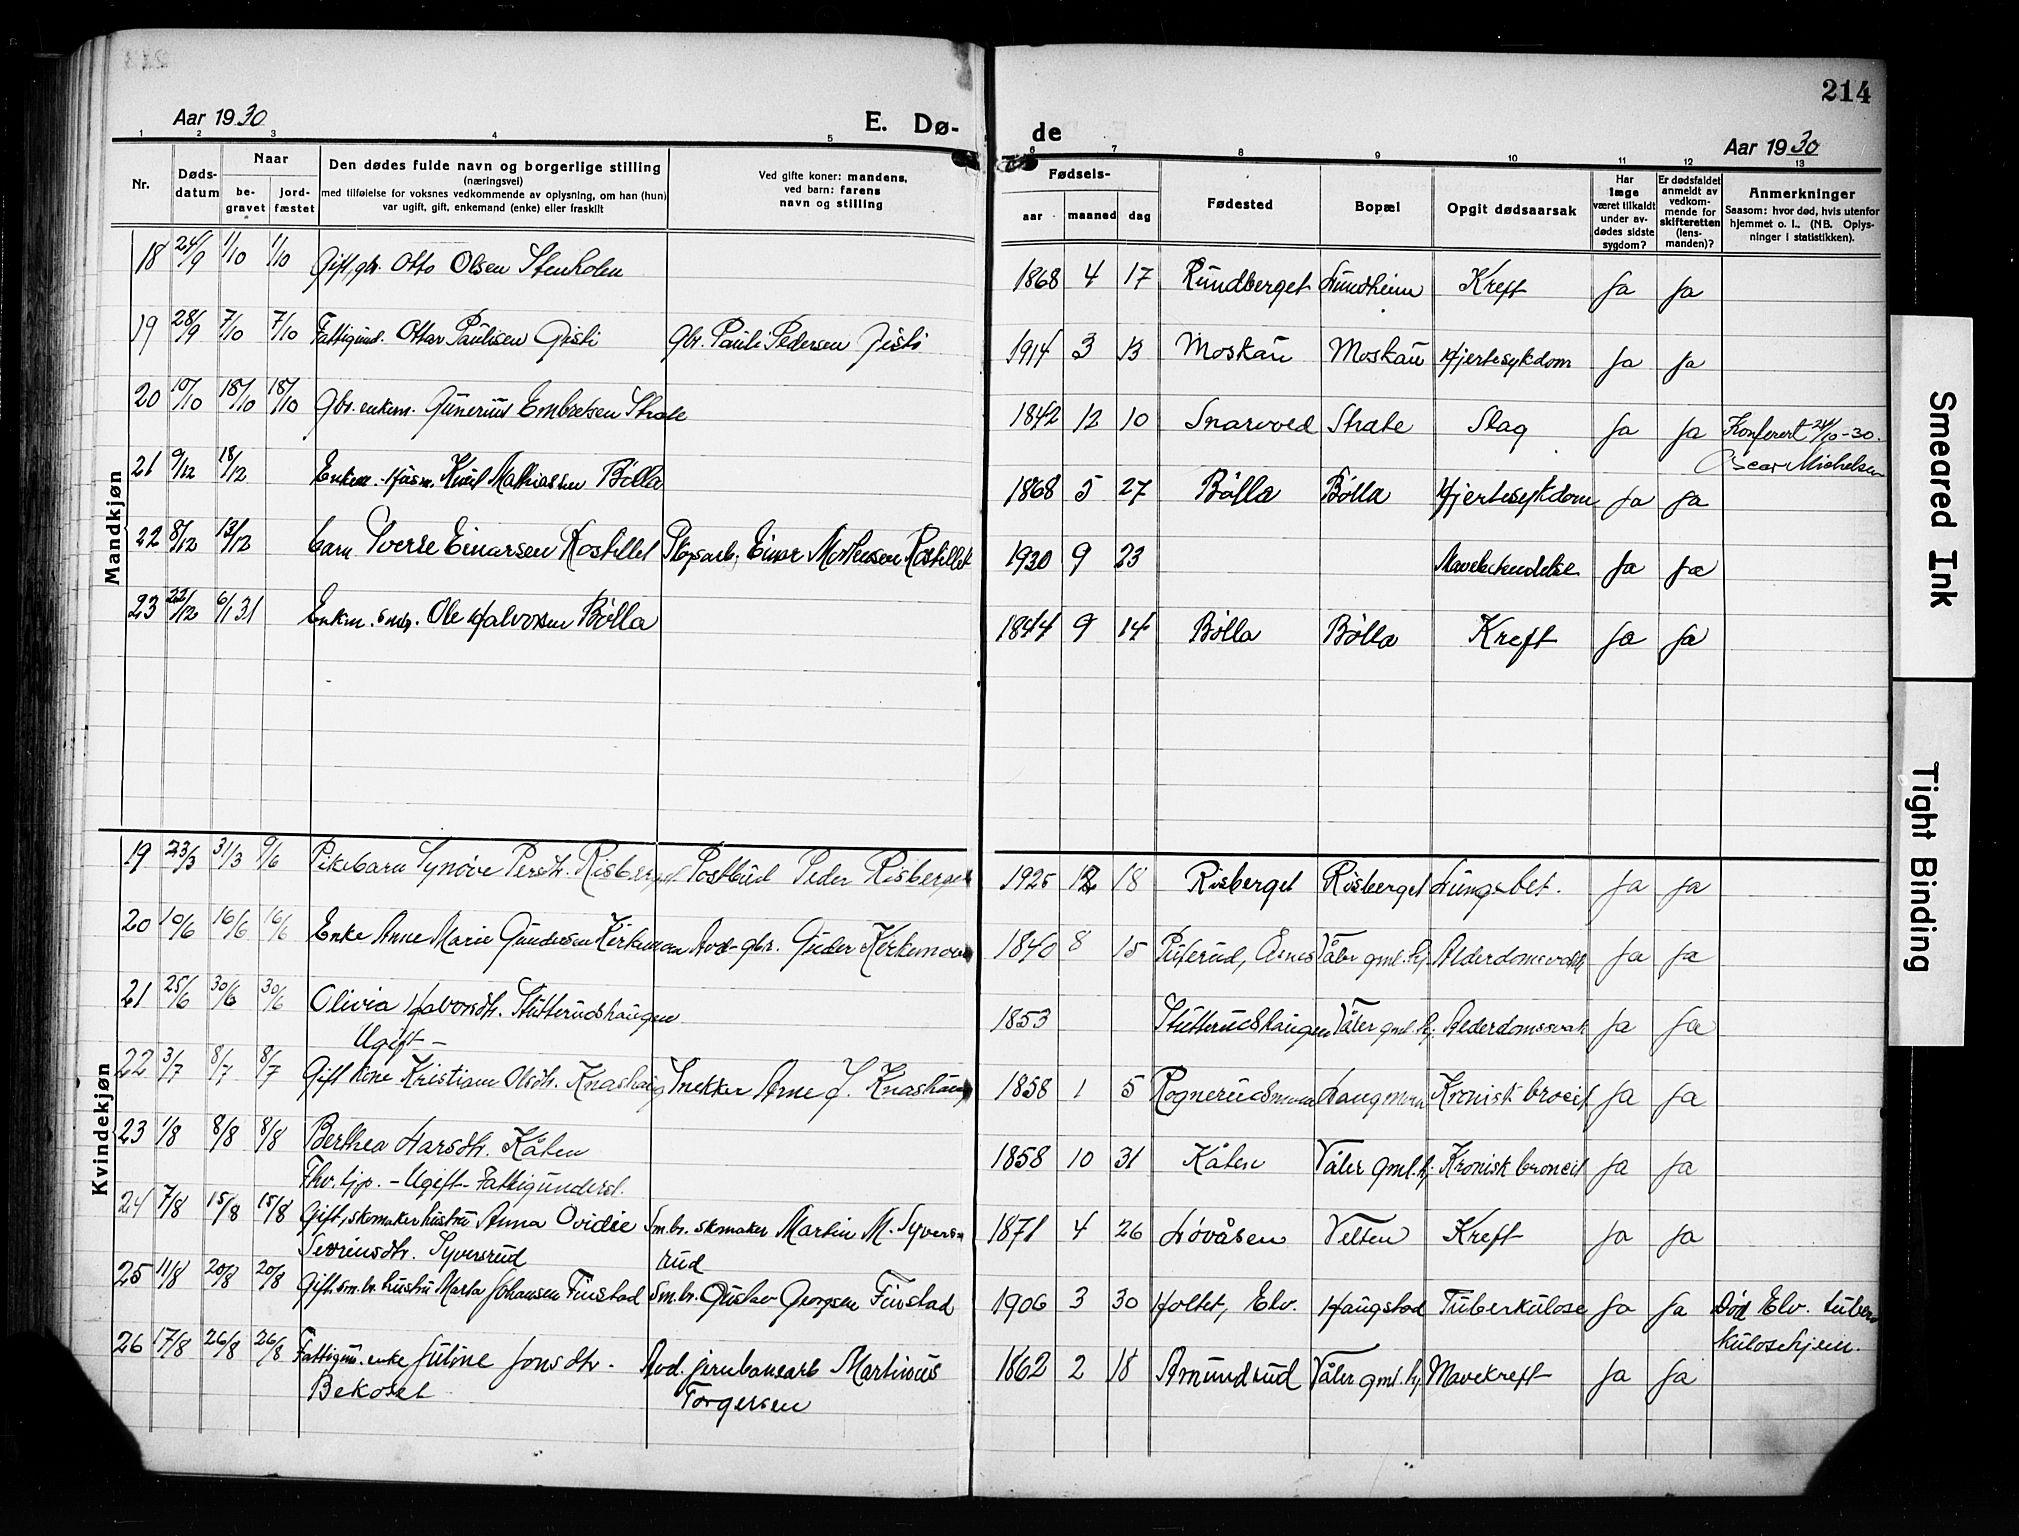 214
Aar 1930 E. Dø- de Aar 1930
1 2 3 4 5 6 7 8 9 10 11 12 13
Nr. Døds-datum Naar be-gravet jord-fæstet Den dødes fulde navn og borgerlige stilling (næringsvei) med tilføielse for voksnes vedkommende av oplysning, om han (hun) var ugift, gift, enkemand (enke) eller fraskilt Ved gifte koner: mandens, ved barn: farens navn og stilling Fødsels- aar maaned dag Fødested Bopæl Opgit dødsaarsak Har læge været tilkaldt under av-dødes sidste sygdom? Er dødsfaldet anmeldt av vedkom-mende for skifteretten (lens-manden)? Anmerkninger Saasom: hvor død, hvis utenfor hjemmet o. l., (NB. Oplys-ninger i statistikken).
Mandkjøn
18 24/9 1/10 1/10 Gift, gbr. Otto Olsen Stenholen 1868 4 17 Rundberget Sundheim Kreft Ja Ja
19 28/9 7/10 7/10 Fattigund. Ottar Paulisen Gisti Gbr. Pauli Pedersen Gisti 1914 3 13 Moskau Moskau Hjertesykdom Ja Ja
20 10/10 18/10 18/10 Gbr. enkem. Gunerius Embretsen Strate 1842 12 10 Snarvved Strate Slag Ja Ja Konferert 24/10-30.
Oscar Michelsen
21 9/12 18/12 Enkem. Husm. Mathiassen Bölla 1868 5 27 Bölla Bölla Hjertesykdom Ja Ja
22 8/12 13/12 barn Sverre Einarsen Rostillet Skogsarb. Einar Mathiesen Rostillet 1930 9 23 Ja Ja
23 22/12 6/1 31 Enkem. Ole Halvorsen Bölla 1844 9 14 Bölla Bölla Kreft Ja Ja
Kvindekjøn
19 23/3 31/3 9/6 Pikebarn Synöve Persdtr. Risberget Postbud Peder Risberget 1925 12 18 Risberget Risberget Lungebet. Ja Ja
20 10/6 16/6 16/6 Enke Anne Marie Gundersen Kirkemoen Avd. gbr. Kirkemoen 1840 8 15 Åsnes Våler gml.hj. Alderdomssvakh Ja Ja
21 25/6 30/6 30/6 Olivia Halvorsdtr. Stutterudshaugen 1853 Stutterudshaugen Våler gml.hj. Alderdomssvak Ja Ja
Ugift -
22 3/7 8/7 8/7 Gift kone Kristiane Olsdtr. Knashaug Snekker Arne J. Knashaug 1858 1 5 Rognerudsmoen Haugmoen Kronisk broncit Ja Ja
23 1/8 8/8 8/8 Berthea Larsdtr. Kåten 1858 10 31 Kåten Våler gml.hj. Kronisk broncit Ja Ja
Fhv. tjp. - Ugift - Fattigunderst.
24 7/8 15/8 15/8 Gift, skomakerhustru Anna Ovidie Sm.br. skomaker Martin M. Syvers- 1871 4 26 Lövåsen Velten Kreft Ja Ja
Severinsdtr. Syversrud rud
25 11/8 20/8 20/8 Gift. sm.br. hustru Marta Johansen Finstad Sm.br. Gustav Georgsen Finstad 1906 3 30 Holtet, Elv. Haugstad Tuberkulose Ja Ja Död Elv. tuber-
kulosehjem.
26 17/8 26/8 26/8 Fattigun. enke Juline Jonsdtr. Avd. jernbanearb Martinius 1862 2 18 Amundrud Våler gml.hj. Mavekreft Ja Ja
Bekoset Torgersen
Smeared Ink
Tight Binding